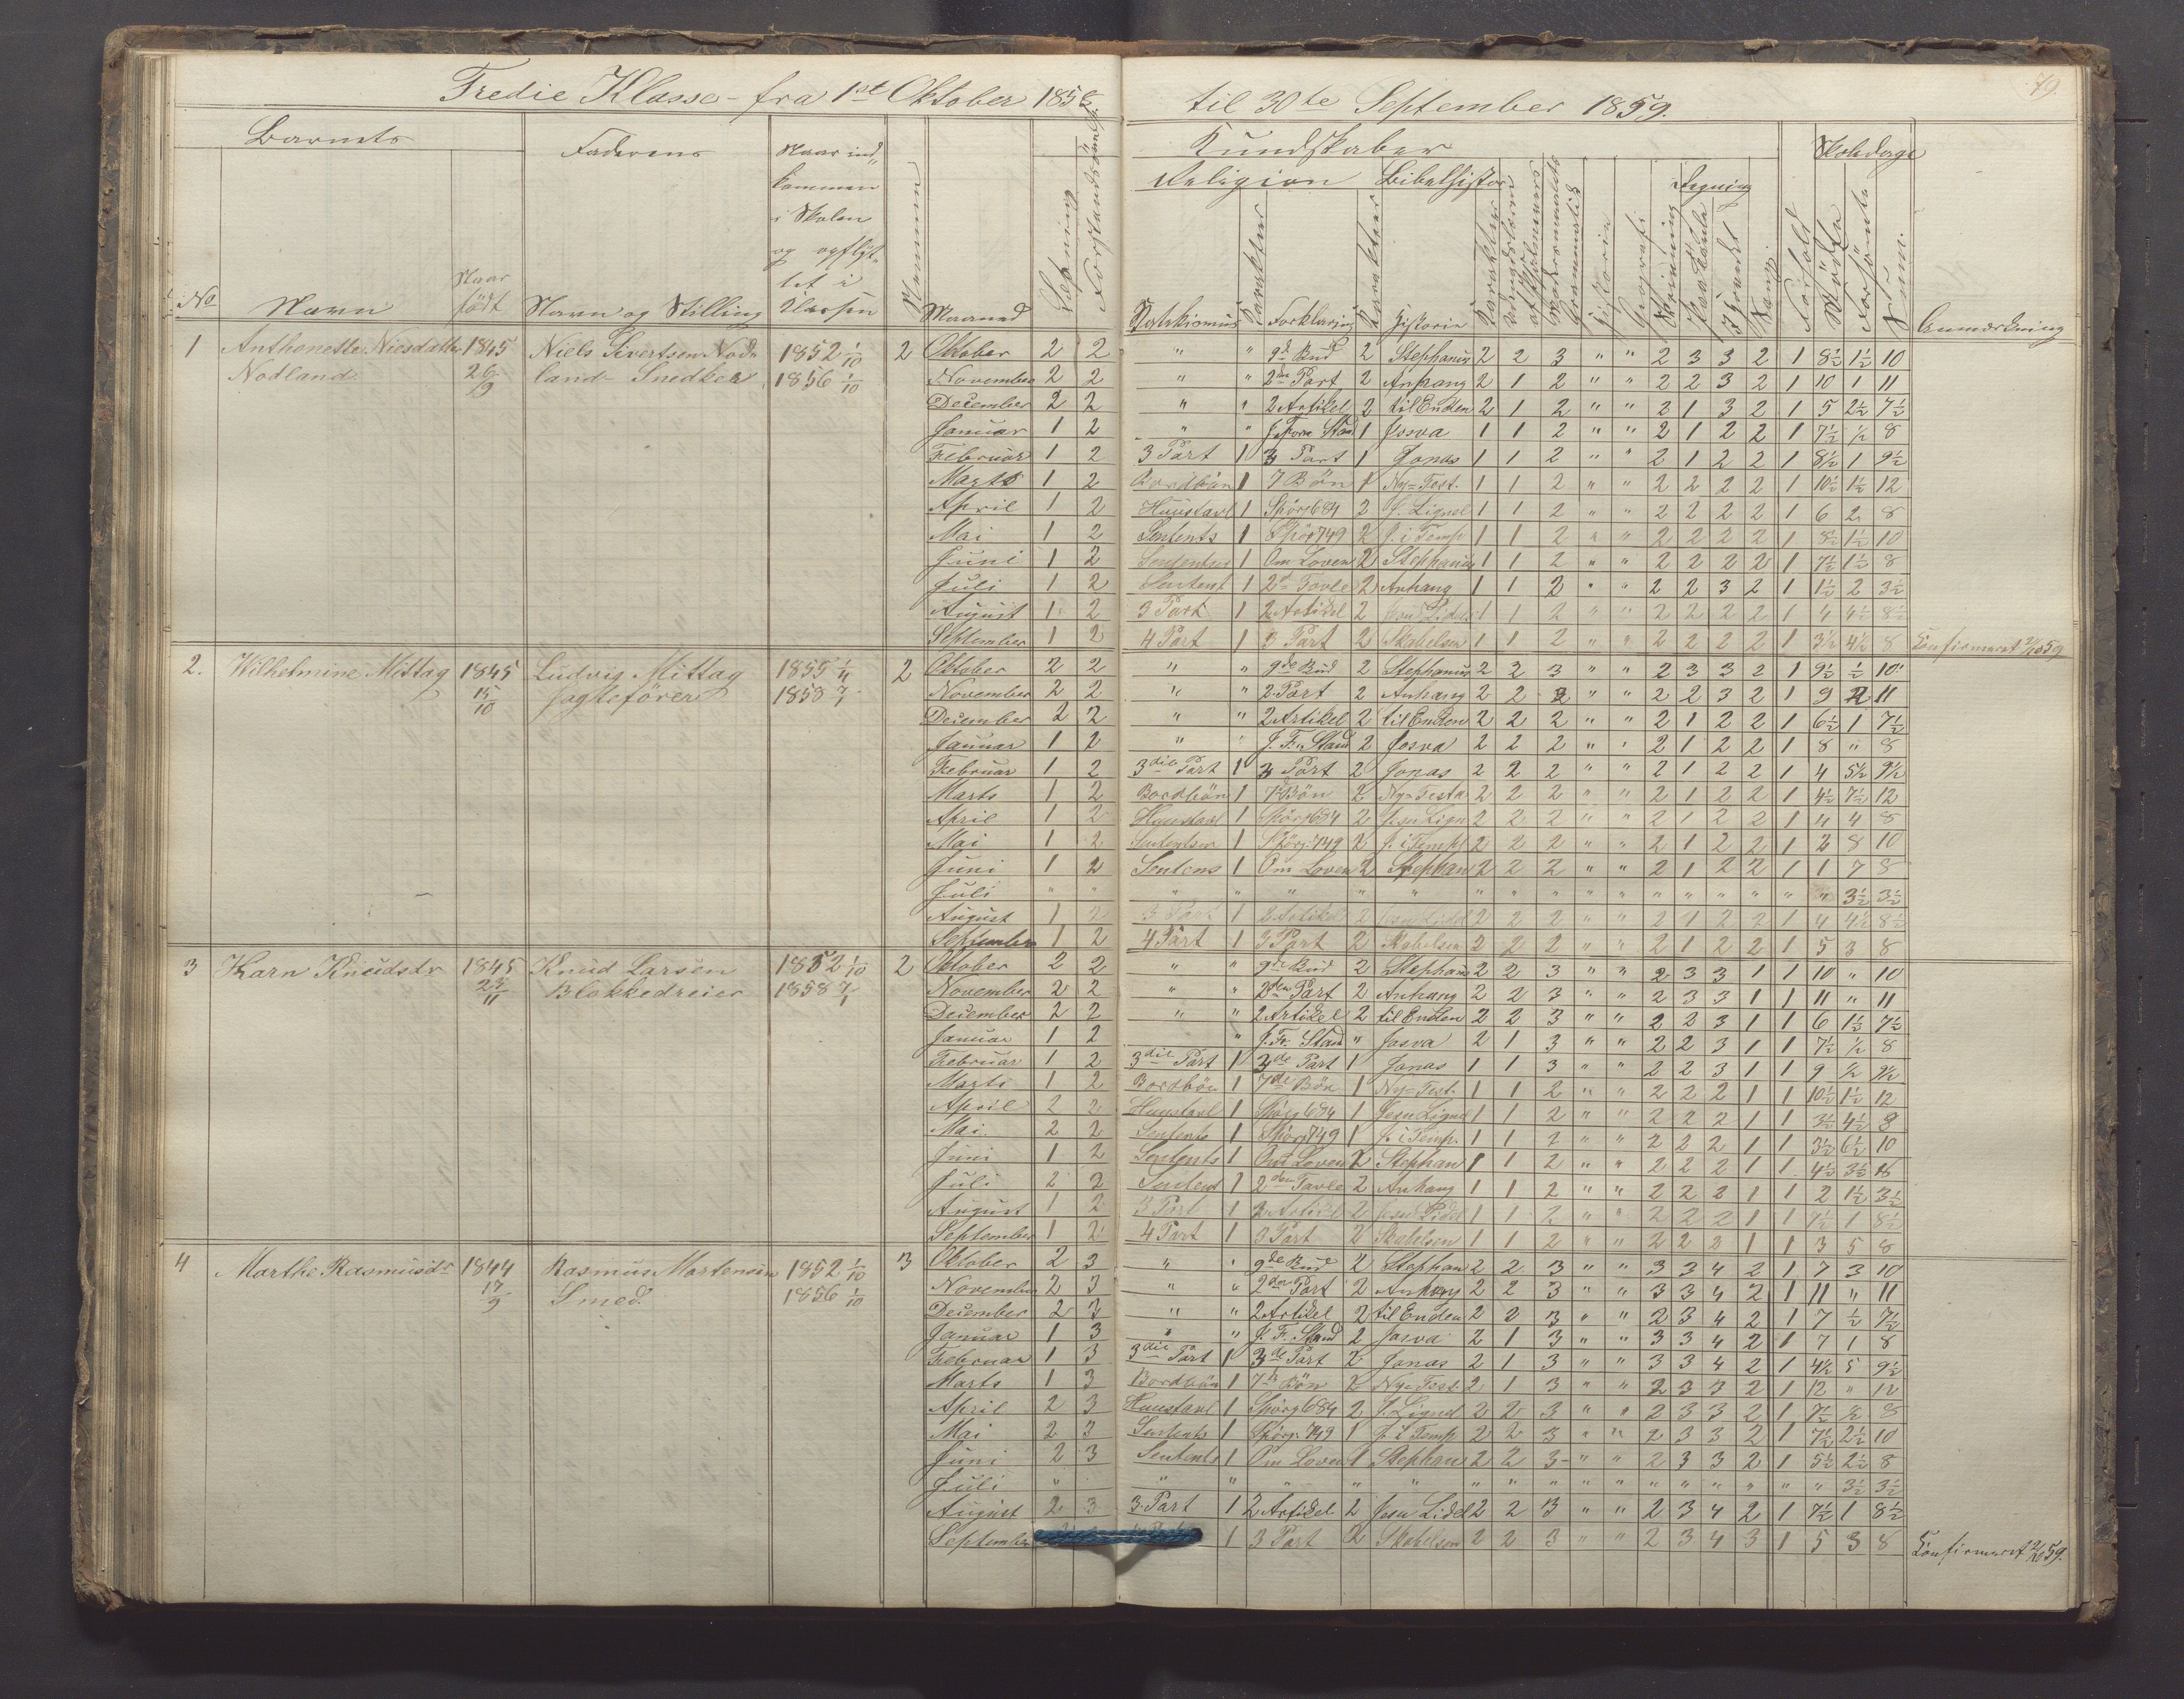 Tredie Klasse - fra 1ste Oktober 1858 til 30te September 1859.
79.
Barnets Faderens Naar ind- Nummer Læsning Forstandsøvelse Kundskaber Skoledage
kommen Religion Bibelhistorie Regning
i Skolen
og opflyt-
tet i
No Navn Naar født Navn og Stilling Klassen Maaned Katekismus Karakter Forklaring Karakter Historie Karakter Grammatik Historie Geografi Skrivning Paa Tavle I Hovedet Sang Forhold Mødte Forsømte Sum. Anmærkning
1 Anthonette Nielsdatter 1845 Niels Sivertsen Nod- 1852 1/10 2 Oktober 2 2 " " 9de Bud 2 Stephanus 2 2 3 " " 2 3 3 2 1 8½ 1½ 10
Nodland. 26/9 land - Snedker 1856 1/10 November 2 2 " " 2den Part 2 Anhang 2 1 2 " " 2 2 3 2 1 10 1 11
December 2 2 " " 2 Artikel 2 til Enden 2 1 2 " " 2 1 3 2 1 5 2½ 7½
Januar 1 2 " " J. Forn Stand 1 Josva 1 1 2 " " 2 1 2 2 1 7½ ½ 8
Februar 1 2 3 Part 1 3 Part 1 Jonas 1 1 2 " " 2 1 2 2 1 8½ 1 9½
Marts 1 2 Bordbøn 1 7 Bøn 1 Ny-Test. 1 1 2 " " 2 2 2 2 1 10½ 1½ 12
April 1 2 Huustavl 1 Spörg 684 2 J. Lignel 1 1 2 " " 2 2 2 2 1 6 2 8
Mai 1 2 Sentents 1 Spör 749 2 J. i Temp 1 1 2 " " 2 2 2 2 1 8½ 1½ 10
Juni 1 2 Sententser 1 Om Loven 2 Stephanus 1 1 2 " " 2 2 2 2 1 7½ 1½ 8
Juli 1 2 Sentent 1 2d Tavle 2 Anhang 1 1 2 " " 2 2 3 2 1 1½ 2 3½
August 1 2 3 Part 1 2 Artikel 2 Jesu Lidels 1 1 2 " " 2 2 2 2 1 4 4½ 8½
September 1 2 4 Part 1 3 Part 2 Skabelsen 1 1 2 " " 2 2 2 2 1 3½ 4½ 8 Confirmeret 2/10 59
2. Wilhelmine Mittag 1845 Ludvig Mittag 1855 1/4 2 Oktober 2 2 " " 9de Bud 2 Stephanus 2 2 3 " " 2 3 3 2 1 9½ ½ 10
15/10 Jagtefører 1858 7/1 November 2 2 " " 2. Part 2 Anhang 2 2 2 " " 2 2 3 2 1 9 2 11
December 2 2 " " 2 Artikel 2 til Enden 2 2 2 " " 2 1 2 2 1 6½ 1 7½
Januar 1 2 " " J. F. Stand 2 Josva 2 2 2 " " 2 1 2 2 1 8 " 8
Februar 1 2 3die Part 1 3 Part 2 Jonas 2 2 2 " " 2 1 2 2 1 4 5½ 9½
Marts 1 2 Bordbøn 1 7 Bøn 2 Ny-Testa 2 2 2 " " 2 1 2 2 1 4½ 7½ 12
April 1 2 Huustavl 1 Spörg 684 2 Jesu Lign 2 2 2 " " 2 1 2 2 1 4 4 8
Mai 1 2 Sententser 1 Spörg. 749 2 J. i Templ 2 2 2 " " 2 1 2 2 1 2 8 10
Juni 1 2 Sentens 1 Om Loven 2 Stephan 2 2 2 " " 2 1 2 2 1 1 7 8
Juli " " " " " " " " " " " " " " " " " " 3½ 3½
August 1 2 3 Part 1 2 Artikel 2 Jesu Lidel 2 2 2 " " 2 1 2 2 1 4 4½ 8½
September 1 2 4 Part 1 3 Part 2 Skabelsen 2 2 2 " " 2 1 2 2 1 5 3 8
3 Karn Knudsdtr 1845 Knud Larsen 1852 1/10 2 Oktober 2 2 " " 9de Bud 2 Stephan 2 2 3 " " 2 3 3 1 1 10 " 10
23/11 Blokkedreier 1858 7/1 November 2 2 " " 2den Part 2 Anhang 2 2 3 " " 2 3 3 1 1 11 " 11
December 2 2 " " 2 Artikel 2 til Enden 2 2 3 " " 2 2 3 1 1 6 1½ 7½
Januar 1 2 " J. Fr. Stand " Josva 2 1 3 " " 2 2 3 1 1 7½ ½ 8
Februar 1 2 3die Part 1 3de Part 1 Jonas 1 1 3 " " 2 2 3 1 1 9 ½ 9½
Marts 1 2 Bordbøn 1 7de Bøn 1 Ny-Test. 1 1 2 " " 2 2 2 1 1 10½ 1½ 12
April 2 2 Huustavl 1 Spörg 684 1 Jesu Lignel 1 1 2 " " 2 2 2 1 1 3½ 4½ 8
Mai. 2 2 Sentents 1 Spörg 749 1 J. i Temp. 1 1 2 " " 2 2 2 1 1 3½ 6½ 10
Juni 1 2 Sentents 1 Om Loven 2 Stephan 1 1 2 " " 2 2 2 1 1 4½ 3½ 8
Juli 2 2 Sentent 1 2den Tavle 2 Anhang 1 1 2 " " 2 2 2 1 1 2 1½ 3½
August 1 2 3 Part 1 2 Artikel 2 Jesu Lidel 1 1 2 " " 2 2 2 1 1 7½ 1 8½
September 1 2 4 Part 1 3 Part 2 Skabelsen 1 1 2 " " 2 2 2 1 1 3 5 8
4 Marthe Rasmusdr 1844 Rasmus Mortensen 1852 1/10 3 Oktober 2 3 " " 9de Bud 2 Stephan 2 2 3 " " 3 3 4 2 1 7 3 10
17/9 Smed. 1856 1/10 November 2 3 " " 2den Part 2 Anhang 2 2 3 " " 3 3 4 2 1 11 " 11
December 2 3 " " 2 Artikel 2 til Enden 2 2 3 " " 2 3 4 2 1 7 ½ 7½
Januar 1 3 " " J. F. Stand 2 Josva 2 1 3 " " 3 3 4 2 1 7 1 8
Februar 1 3 3die Part 1 3de Part 2 Jonas 2 1 3 " " 3 3 4 2 1 4½ 5 9½
Marts 1 3 Bordbøn 1 7de Bøn 2 Ny-Test. 2 1 3 " " 2 3 3 2 1 12 " 12
April 2 3 Huustavl 1 Spörg 684 2 J. Lignel 2 2 3 " " 2 3 3 2 1 7½ ½ 8
Mai 2 3 Sentents 1 Spörg. 749 1 J. i Temp 2 2 3 " " 2 3 3 2 1 7½ 2½ 10
Juni 2 3 Sentents 1 Om Loven 1 Stephan 2 2 3 " " 2 3 3 2 1 5½ 2½ 8
Juli " " " " " " " " " " " " " " " " " 3½ 3½
August 2 3 3. Part 1 2 Artikel 2 Jesu Lidel 2 2 3 " " 2 3 4 2 1 7½ 1 8½
September 1 3 Part 2 Skabelsen 2 2 3 " " 2 3 4 3 1 5 3 8 Confirmeret 2/10 59.